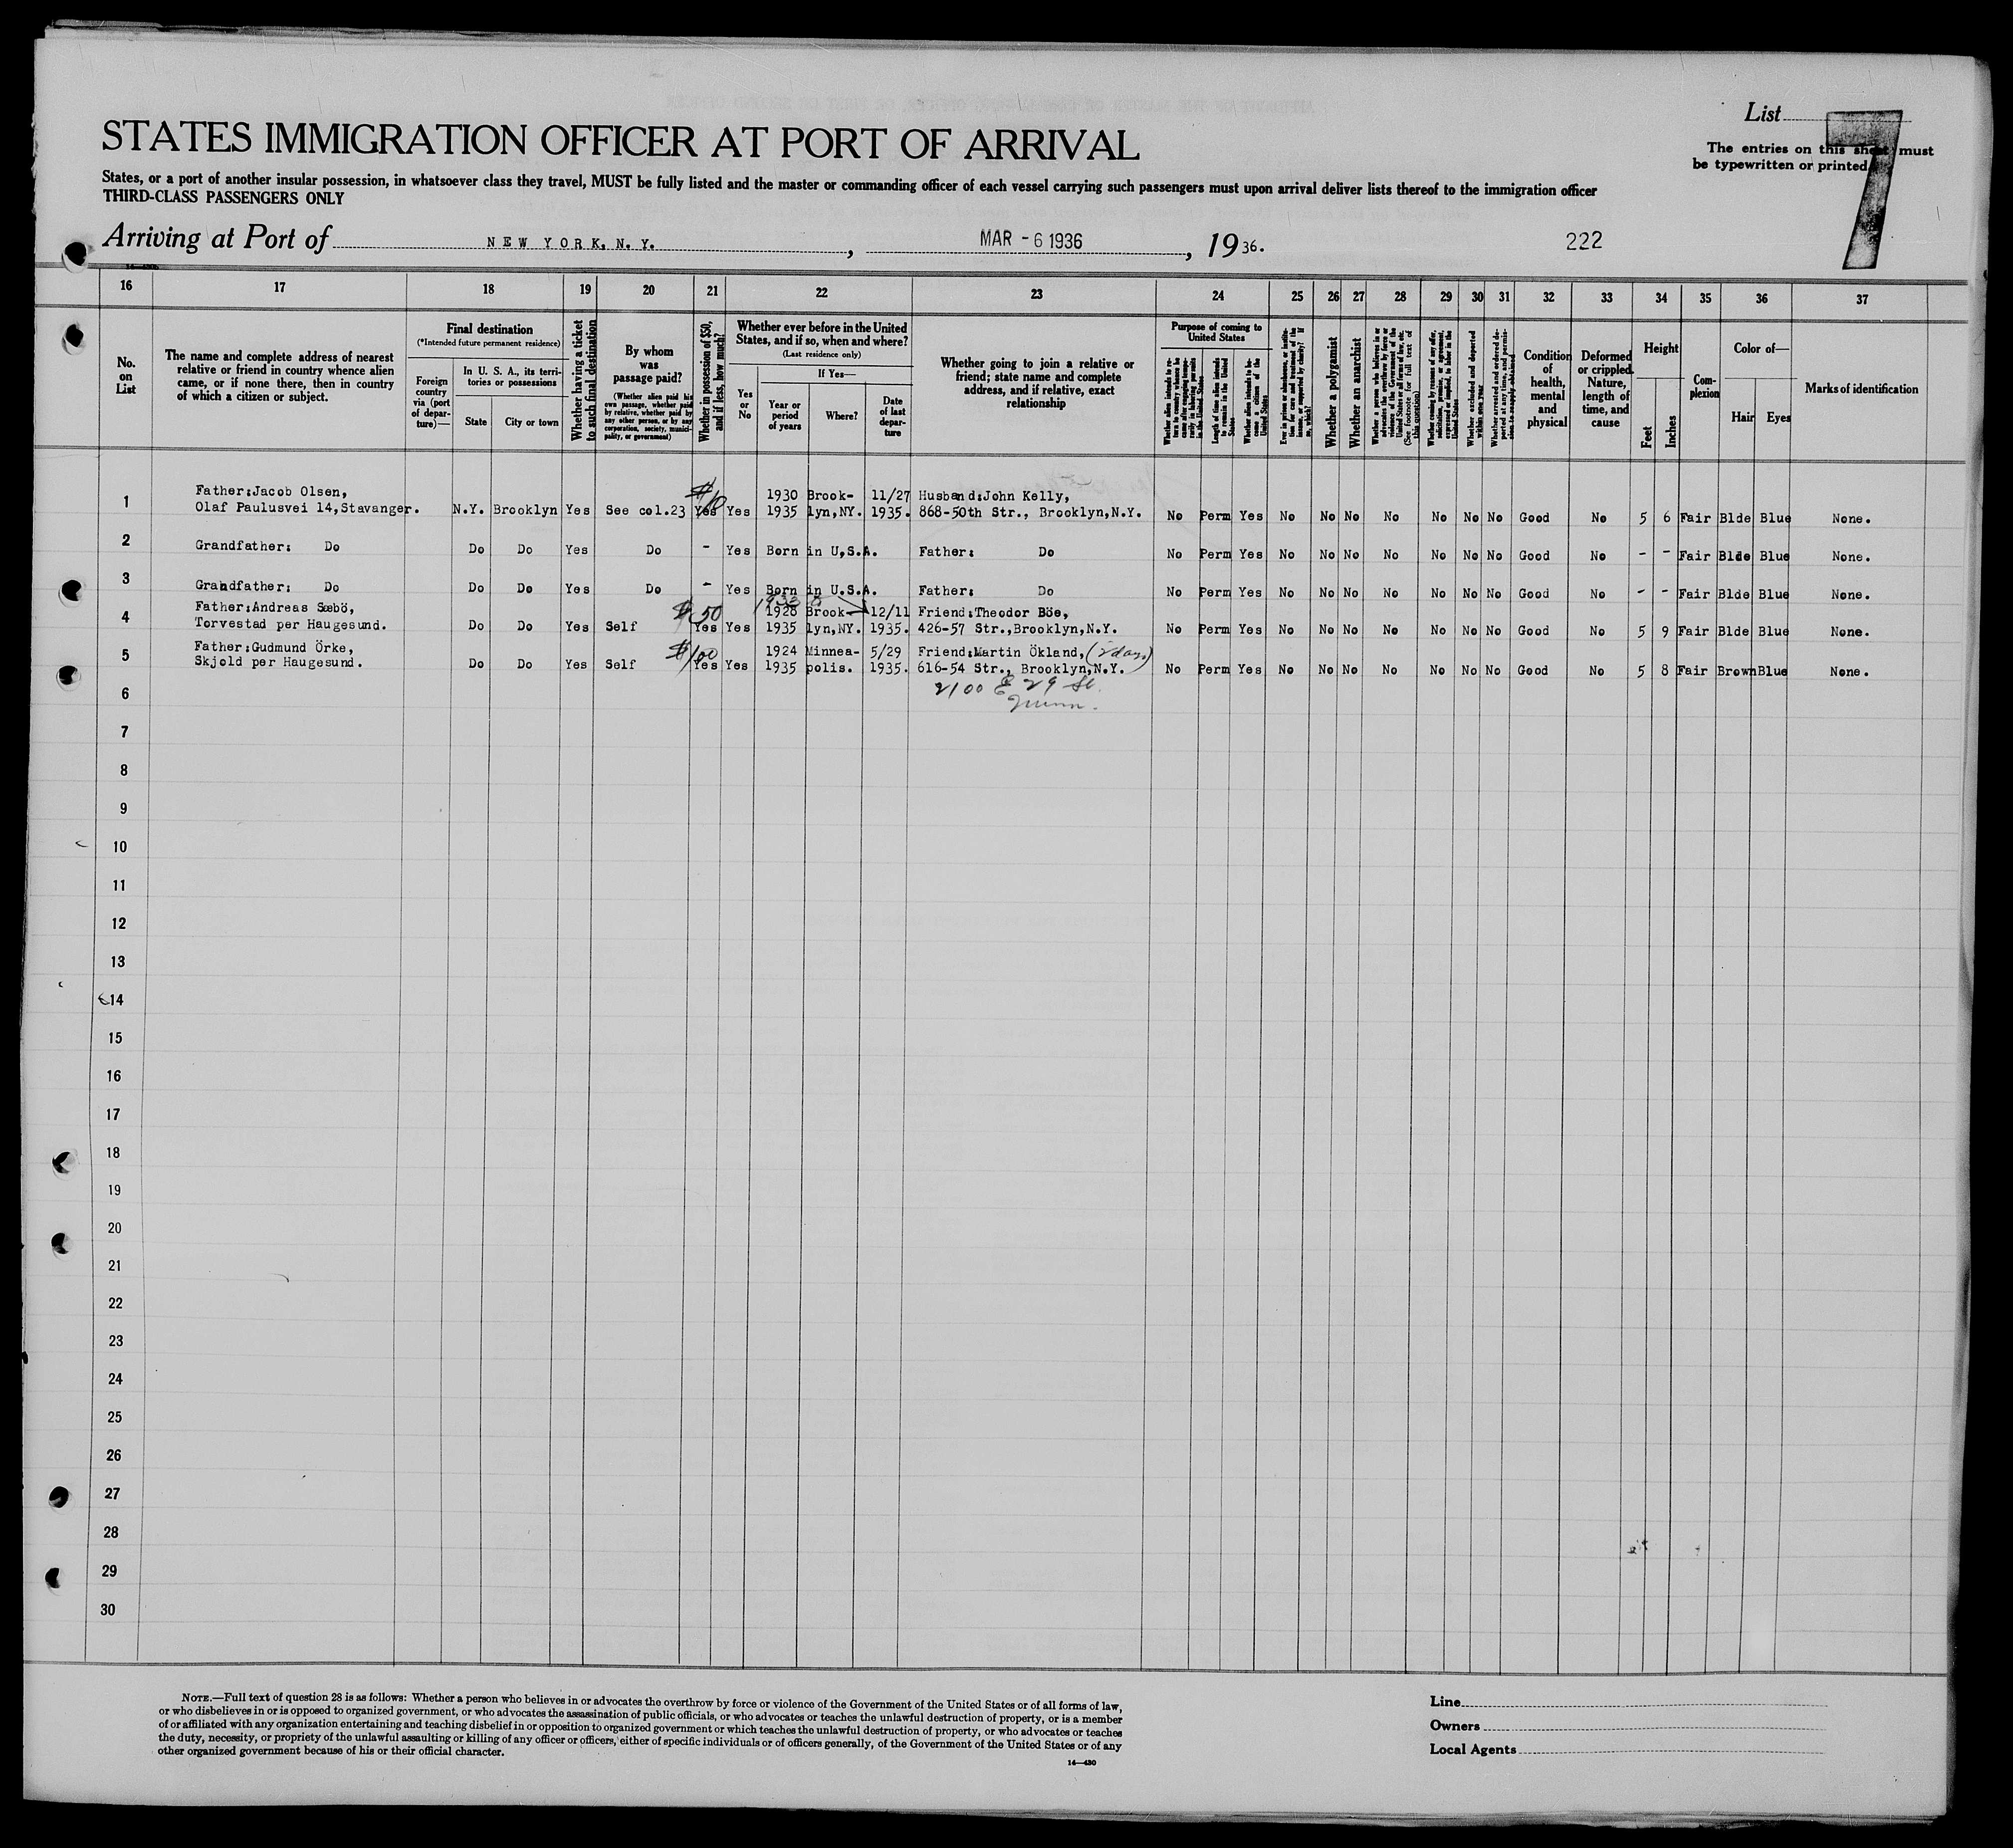 List
7
The entries on this sheet must
be typewritten or printed
STATES IMMIGRATION OFFICER AT PORT OF ARRIVAL
States, or a port of another insular possession, in whatsoever class they travel, MUST be fully listed and the master or commanding officer of each vessel carrying such passengers must upon arrival deliver lists thereof to the immigration officer
THIRD-CLASS PASSENGERS ONLY
Arriving at Port of NEW YORK, N. Y. , MAR - 6 1936 , 19 36. 222
16 17 18 19 20 21 22 23 24 25 26 27 28 29 30 31 32 33 34 35 36 37
No. on List
The name and complete address of nearest relative or friend in country whence alien came, or if none there, then in country of which a citizen or subject.
Final destination
(*Intended future permanent residence)
Foreign country via (port of departure)—
In U. S. A., its territories or possessions
State
City or town
Whether having a ticket to such final destination
By whom was passage paid?
(Whether alien paid his own passage, whether paid by relative, whether paid by any other person, or by any corporation, society, municipality, or government)
Whether in possession of $50, and if less, how much?
Whether ever before in the United States, and if so, when and where?
(Last residence only)
Yes or No
If Yes—
Year or period of years
Where?
Date of last departure
Whether going to join a relative or friend; state name and complete address, and if relative, exact relationship
Purpose of coming to United States
Length of time alien intends to remain in the United States
Whether alien intends to become a citizen of the United States
Whether a polygamist
Whether an anarchist
Condition of health, mental and physical
Deformed or crippled. Nature, length of time, and cause
Height
Feet
Inches
Complexion
Color of—
Hair
Eyes
Marks of identification
1 Father:Jacob Olsen, $10 1930 Brook- 11/27 Husband:John Kelly,
Olaf Paulusvei 14,Stavanger. N.Y. Brooklyn Yes See col.23 Yes Yes 1935 lyn,NY. 1935. 868-50th Str., Brooklyn,N.Y. No Perm Yes No No No No No No No Good No 5 6 Fair Blde Blue None.
2 Grandfather: Do Do Do Yes Do - Yes Born in U.S.A. Father: Do No Perm Yes No No No No No No No Good No - - Fair Blde Blue None.
3 Grandfather: Do Do Do Yes Do - Yes Born in U.S.A. Father: Do No Perm Yes No No No No No No No Good No - - Fair Blde Blue None.
4 Father:Andreas Sæbö, $50 1928 Brook- 12/11 Friend:Theodor Böe,
Torvestad per Haugesund. Do Do Yes Self Yes Yes 1935 lyn,NY. 1935. 426-57 Str.,Brooklyn,N.Y. No Perm Yes No No No No No No No Good No 5 9 Fair Blde Blue None.
5 Father:Gudmund Örke, $100 1924 Minnea- 5/29 Friend:Martin Ökland, (2 days)
Skjold per Haugesund. Do Do Yes Self Yes Yes 1935 polis. 1935. 616-54 Str., Brooklyn,N.Y. No Perm Yes No No No No No No No Good No 5 8 Fair Brown Blue None.
6 2100 E 29 St.
Minn.
7
8
9
10
11
12
13
14
15
16
17
18
19
20
21
22
23
24
25
26
27
28
29
30
NOTE.—Full text of question 28 is as follows: Whether a person who believes in or advocates the overthrow by force or violence of the Government of the United States or of all forms of law,
or who disbelieves in or is opposed to organized government, or who advocates the assassination of public officials, or who advocates or teaches the unlawful destruction of property, or is a member
of or affiliated with any organization entertaining and teaching disbelief in or opposition to organized government or which teaches the unlawful destruction of property, or who advocates or teaches
the duty, necessity, or propriety of the unlawful assaulting or killing of any officer or officers, either of specific individuals or of officers generally, of the Government of the United States or of any
other organized government because of his or their official character.
14—430
Line
Owners
Local Agents